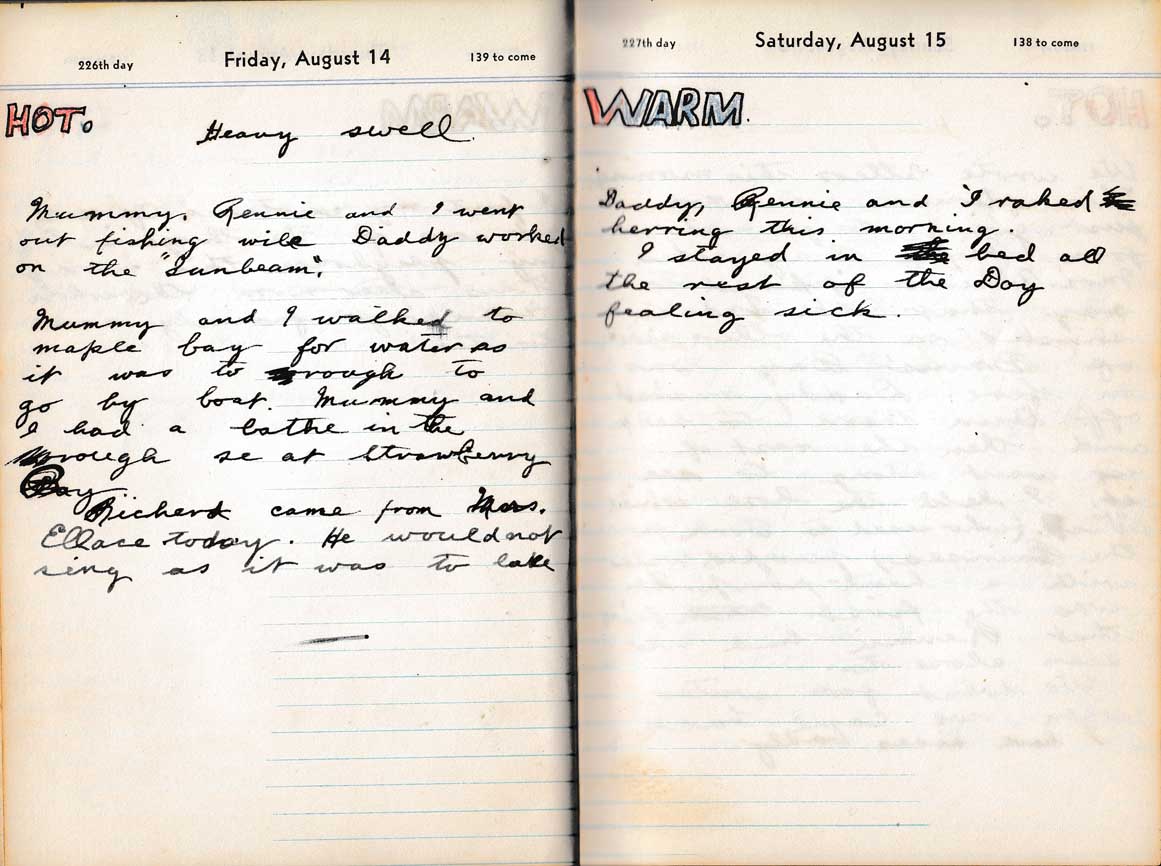 226th day
Friday, August 14
139 to come
HOT.
Heavy swell.
Mummy, Rennie and I went
out fishing wile Daddy worked
on the "Sunbeam".
Mummy and I walked to
maple bay for water as
it was to rough to
go by boat. Mummy and
I had a bathe in the
rough se at Strawberry
Bay
Richard came from Mrs.
Ellace today. He would not
sing as it was to late
227th day
Saturday, August 15
138 to come
WARM.
Daddy, Rennie and I raked
herring this morning.
I stayed in bed all
the rest of the Day
fealing sick.